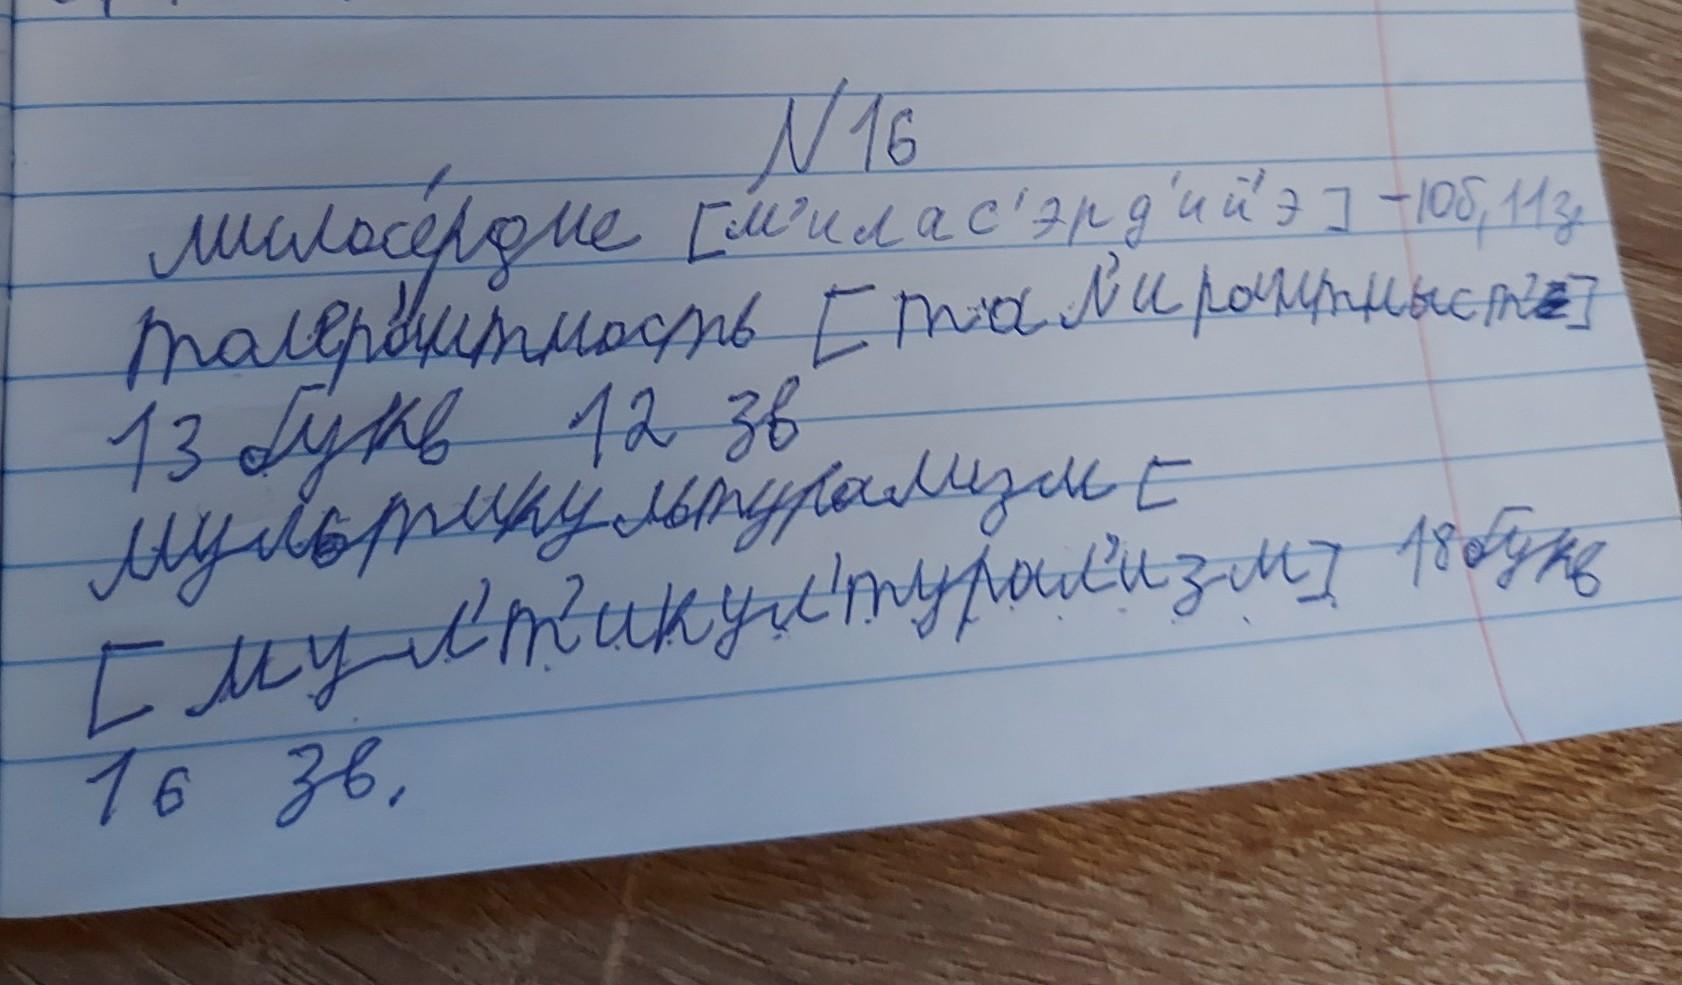 N 16
милосе́рдие [м'илас'эрд'ий'э] - 10б, 11з.
толера́нтность [тал'ирантныст']
13 букв 12 зв
мультикультурализм [
[мул'т'икул'турал'изм] 18 букв
16 зв.